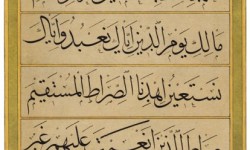 مالك يوم الدين اياك نعبد واياك
نستعين اهدنا الصراط المستقيم
صراط الذين انعمت عليهم غير